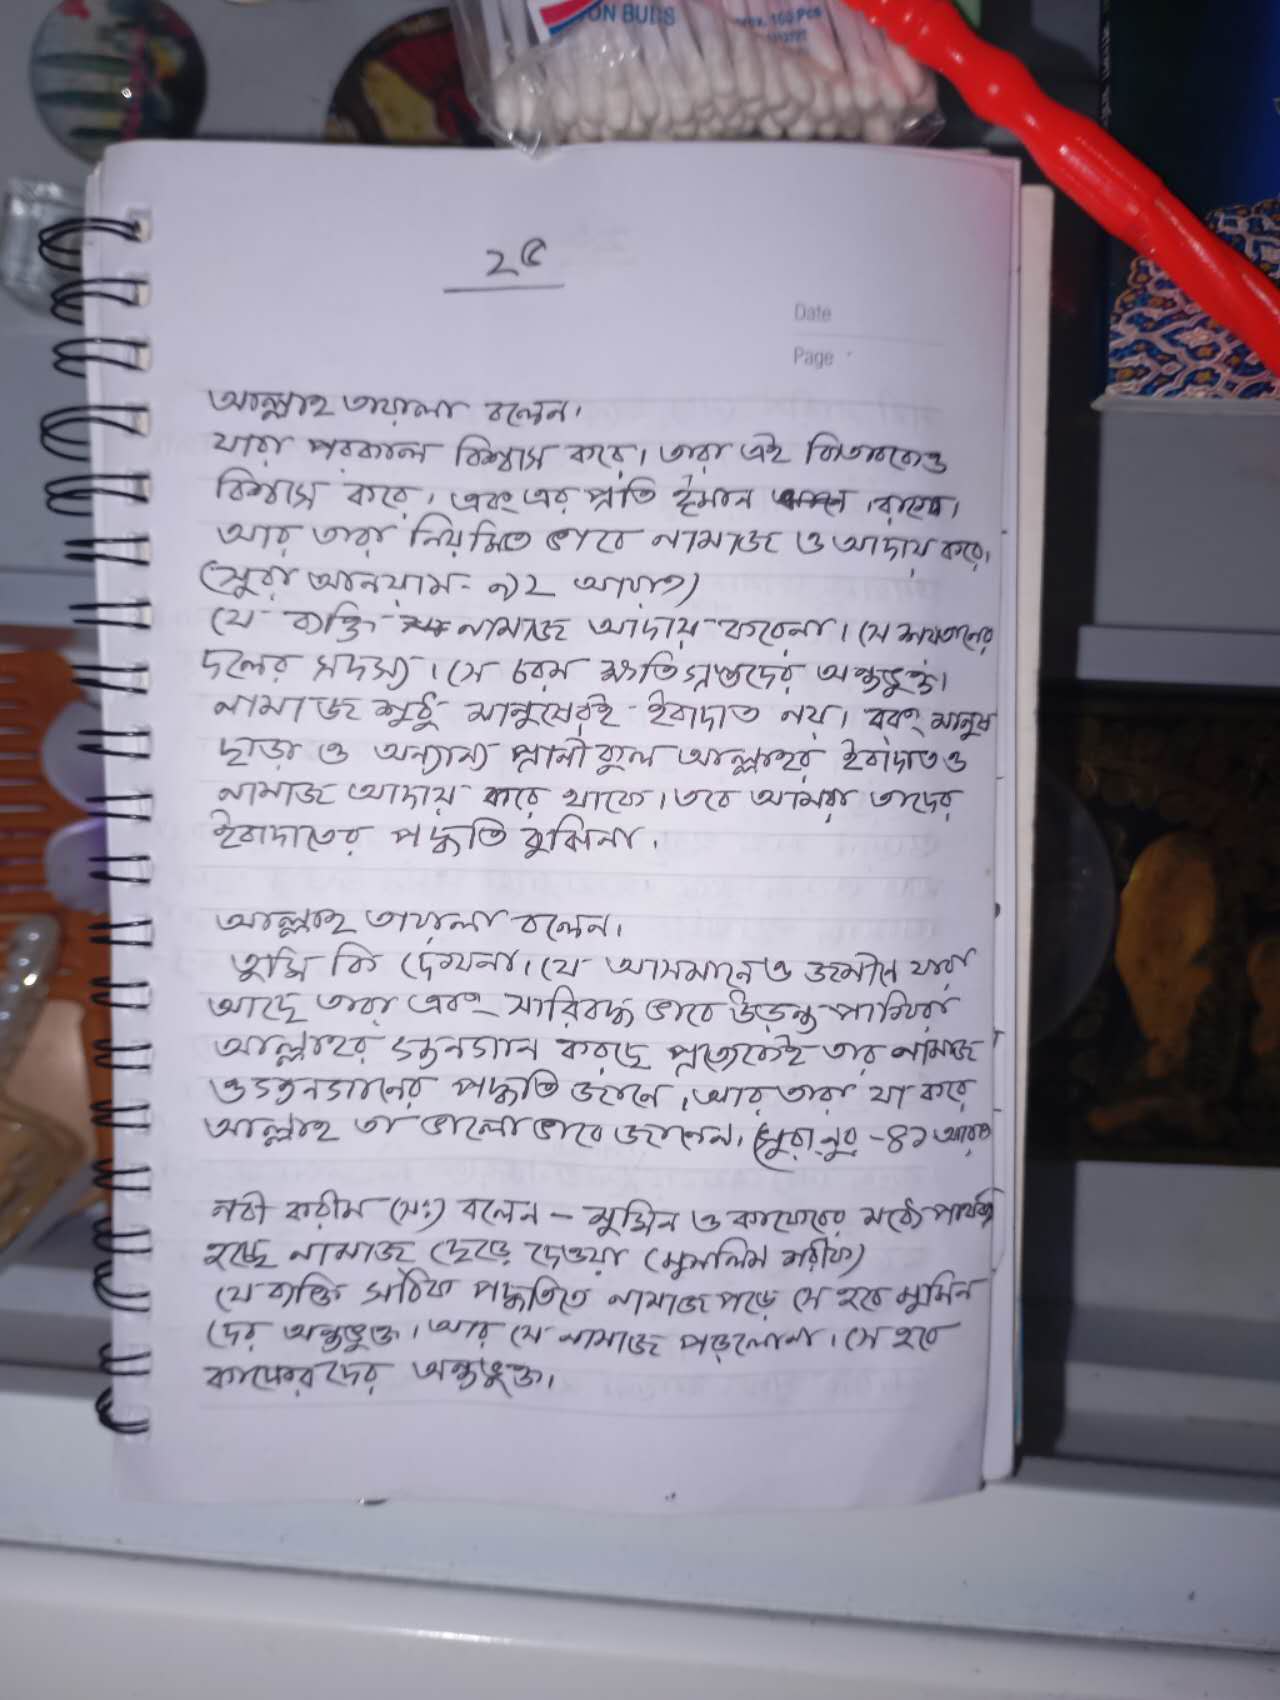 ON BUDS
Approx. 100 Pcs
২৫
Date
Page
আল্লাহ তায়ালা বলেন।
যারা পরকাল বিশ্বাস করে। তারা এই কিতাবকেও
বিশ্বাস করে। এবং এর প্রতি ঈমান রাখে।
আর তারা নিয়মিত ভাবে নামাজ ও আদায় করে।
(সুরা আনয়াম- ৯২ আয়াত)
যে ব্যক্তি নামাজ আদায় করেনা। সে শয়তানের
দলের সদস্য। সে চরম ক্ষতিগ্রস্তদের অন্তভুক্ত।
নামাজ শুধু মানুষেরই ইবাদাত নয়। বরং মানুষ
ছাড়া ও অন্যান্য প্রানীকুল আল্লাহর ইবাদাতও
নামাজ আদায় করে থাকে। তবে আমরা তাদের
ইবাদাতের পদ্ধতি বুঝিনা।
আল্লাহ তায়ালা বলেন।
তুমি কি দেখনা। যে আসমানে ও জমীনে যারা
আছে তারা এবং সারিবদ্ধ ভাবে উড়ন্ত পাখিরা
আল্লাহর গুনগান করছে প্রত্যেকেই তার নামাজ
ও গুনগানের পদ্ধতি জানে। আর তারা যা করে
আল্লাহ তা ভালোভাবে জানেন। (সুরা নুর -৪১ আয়াত
নবী করীম (সঃ) বলেন - মুমিন ও কাফেরের মধ্যে পার্থক্য
হচ্ছে নামাজ ছেড়ে দেওয়া (মুসলিম শরীফ)
যে ব্যক্তি সঠিক পদ্ধতিতে নামাজ পড়ে সে হবে মুমিন
দের অন্তভুক্ত। আর যে নামাজ পড়লোনা। সে হবে
কাফেরদের অন্তভুক্ত।